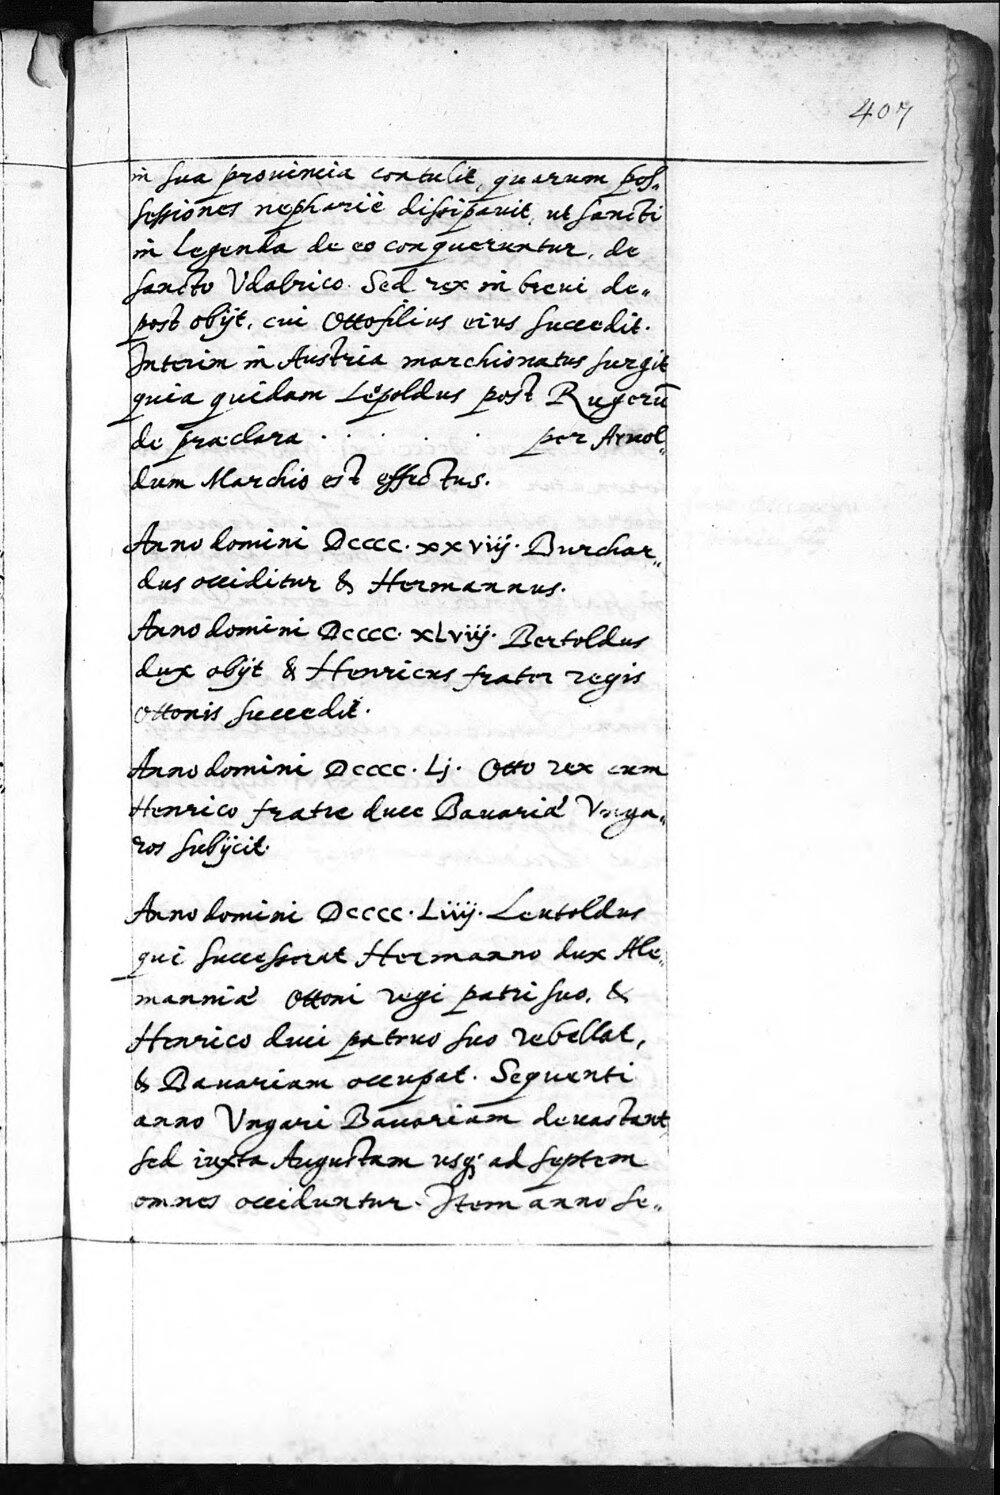 407
in sua prouincia contulit, quarum pos„
sessiones nepharie dissipauit, ut sancti
in legenda de eo conqueruntur, de
sancto Vdalrico. Sed rex in breui de„
post obijt, cui Otto filius eius succedit.
Interim in Austria marchionatus surgit
quia quidam Lepoldus post Rugerū
de præclara . . . . . per Arnol„
dum Marchio est effectus.
Anno domini Dcccc. xxviij. Burchar„
dus occiditur & Hermannus.
Anno domini Dcccc. xLviij. Bertoldus
dux obijt & Henricus frater regis
Ottonis succedit.
Anno domini Dcccc. Lj. Otto rex cum
Henrico fratre duce Bauariæ Vnga„
ros subijcit.
Anno domini Dcccc. Liiij. Leutoldus
qui successerat Hermanno dux Ale„
manniæ Ottoni regi patri suo, &
Henrico duci patruo suo rebellat,
& Bauariam occupat. Sequenti
anno Vngari Bauariam deuastant,
sed iuxta Augustam usq; ad septem
omnes occiduntur. Item anno se„